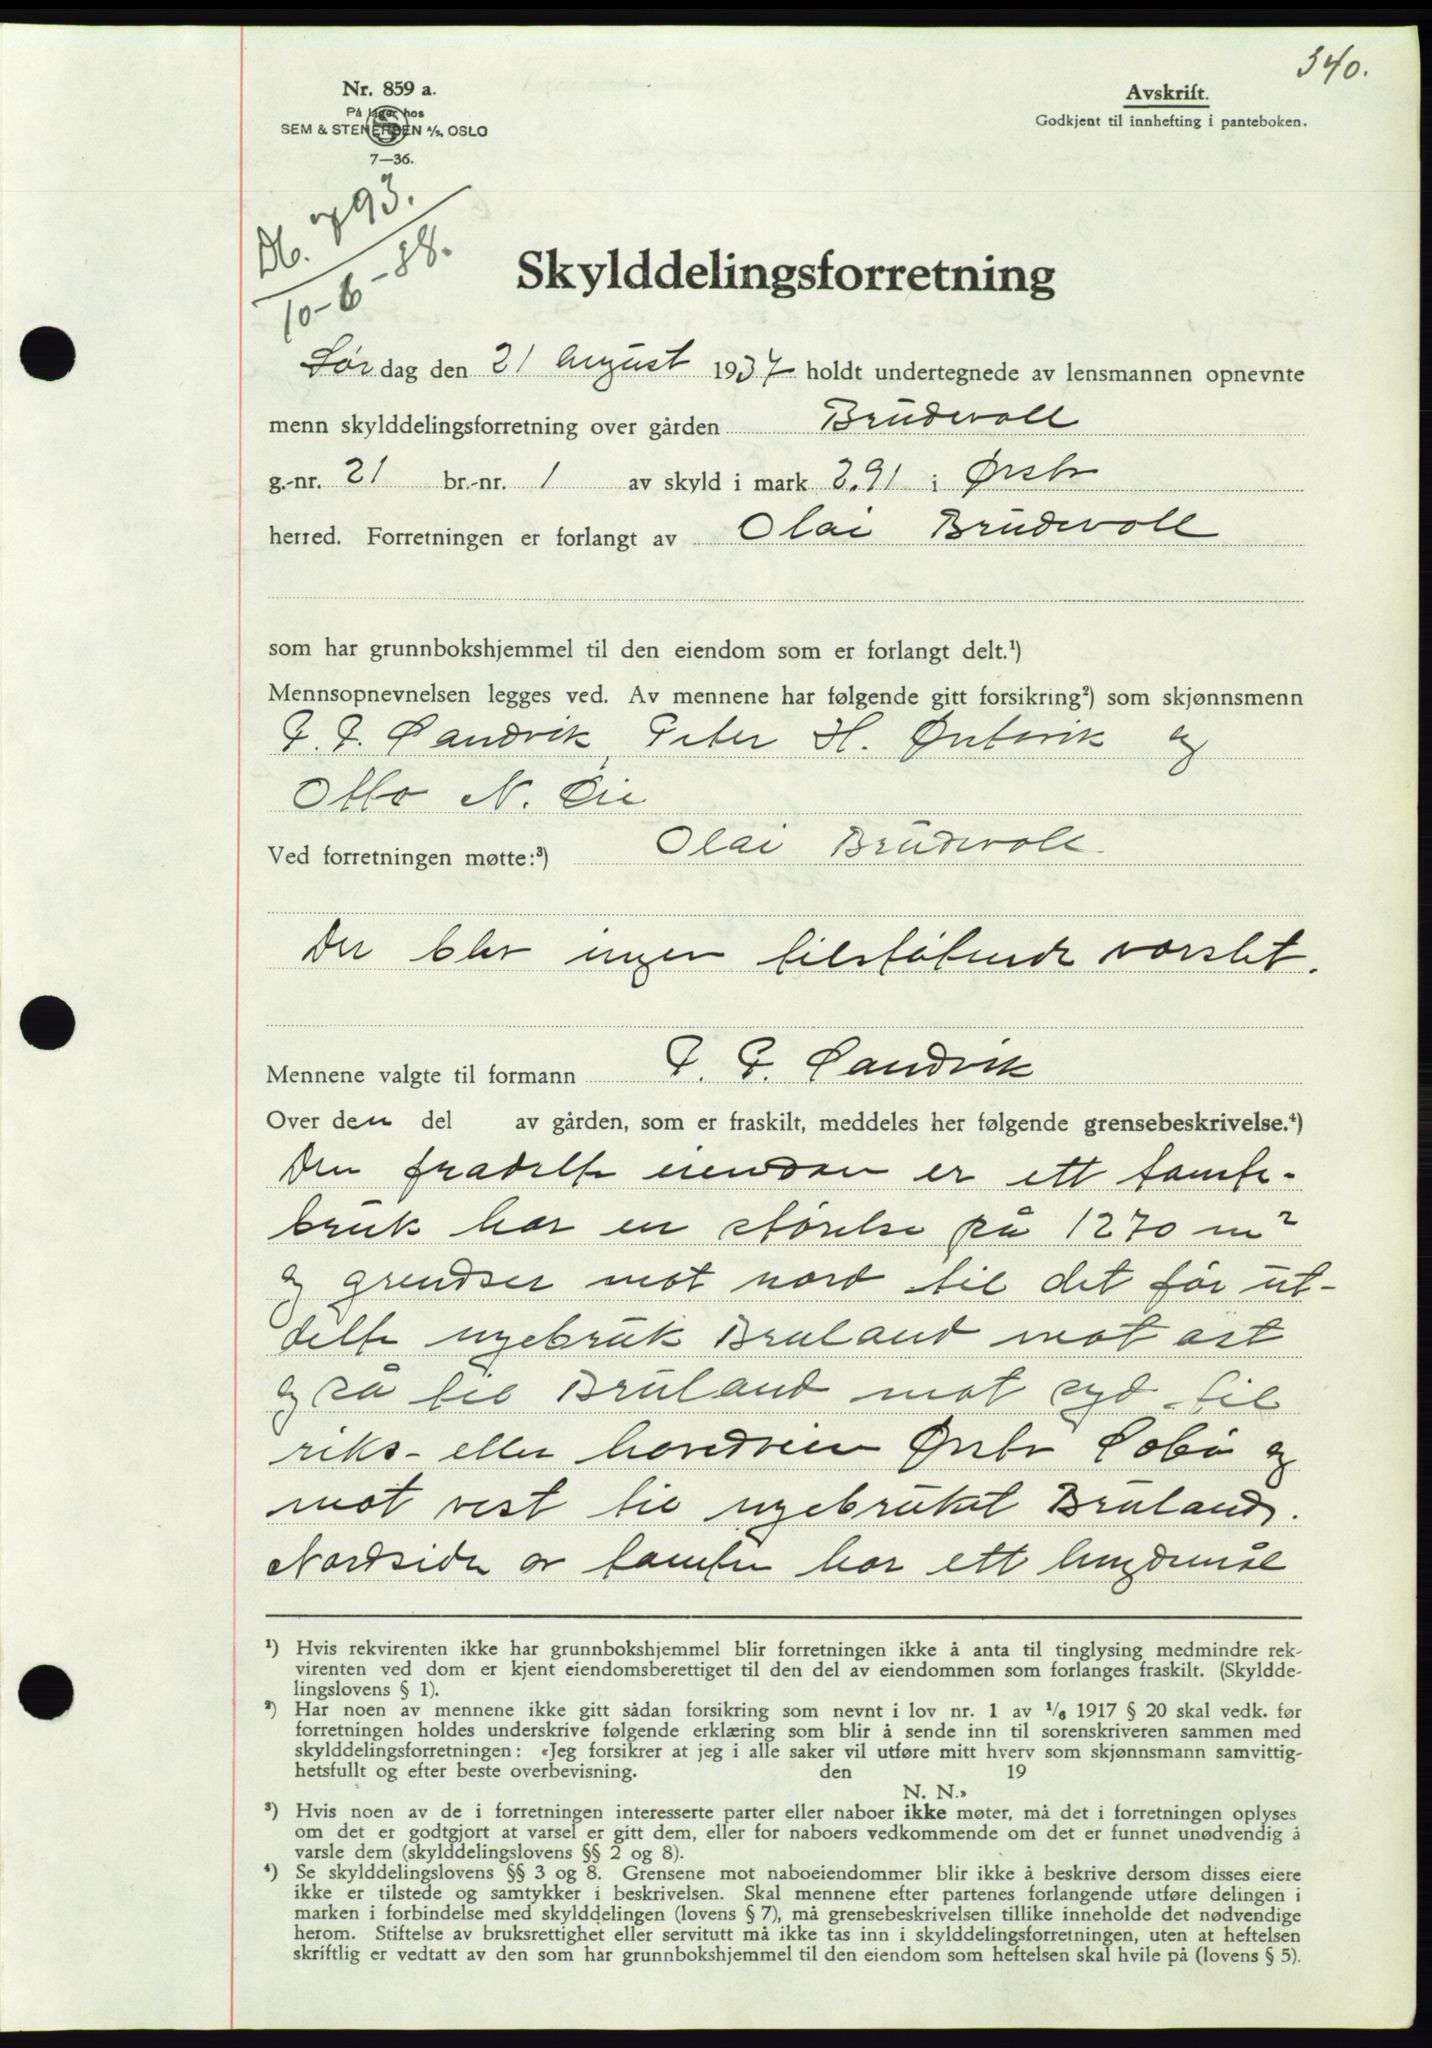 340.
Nr. 859 a.
På lager hos
SEM & STENERSEN A/S, OSLO
7—36.
Avskrift.
Godkjent til innhefting i panteboken.
Db. 793.
10-6-38.
Skylddelingsforretning
Lørdag den 21 august 1937 holdt undertegnede av lensmannen opnevnte
menn skylddelingsforretning over gården Brudevoll
g.-nr. 21 br.-nr. 1 av skyld i mark 2.91 i Ørsta
herred. Forretningen er forlangt av Olai Brudevoll
som har grunnbokshjemmel til den eiendom som er forlangt delt.¹)
Mennsopnevnelsen legges ved. Av mennene har følgende gitt forsikring²) som skjønnsmenn
P. P. Sandvik, Peter H. Ørstavik og
Otto N. Øie
Ved forretningen møtte:³) Olai Brudevoll.
Der blev ingen tilstøtende varslet.
Mennene valgte til formann P. P. Sandvik
Over den del av gården, som er fraskilt, meddeles her følgende grensebeskrivelse.⁴)
Den fradelte eiendom er ett tomte-
bruk har en størelse på 1270 m²
og grendser mot nord til det før ut-
delte nyebruk Bruland mot øst
og så til Bruland mot syd til
riks- eller hovedveien Ørsta Sæbø og
mot vest til nyebruket Bruland.
Nordside av tomten har ett lengdemål
¹) Hvis rekvirenten ikke har grunnbokshjemmel blir forretningen ikke å anta til tinglysing medmindre rek-
virenten ved dom er kjent eiendomsberettiget til den del av eiendommen som forlanges fraskilt. (Skyldde-
lingslovens § 1).
²) Har noen av mennene ikke gitt sådan forsikring som nevnt i lov nr. 1 av ¹/₆ 1917 § 20 skal vedk. før
forretningen holdes underskrive følgende erklæring som blir å sende inn til sorenskriveren sammen med
skylddelingsforretningen: «Jeg forsikrer at jeg i alle saker vil utføre mitt hverv som skjønnsmann samvittig-
hetsfullt og efter beste overbevisning. den 19
N. N.»
³) Hvis noen av de i forretningen interesserte parter eller naboer ikke møter, må det i forretningen oplyses
om det er godtgjort at varsel er gitt dem, eller for naboers vedkommende om det er funnet unødvendig å
varsle dem (skylddelingslovens §§ 2 og 8).
⁴) Se skylddelingslovens §§ 3 og 8. Grensene mot naboeiendommer blir ikke å beskrive dersom disses eiere
ikke er tilstede og samtykker i beskrivelsen. Skal mennene efter partenes forlangende utføre delingen i
marken i forbindelse med skylddelingen (lovens § 7), må grensebeskrivelsen tillike inneholde det nødvendige
herom. Stiftelse av bruksrettighet eller servitutt må ikke tas inn i skylddelingsforretningen, uten at heftelsen
skriftlig er vedtatt av den som har grunnbokshjemmel til den eiendom som heftelsen skal hvile på (lovens § 5).